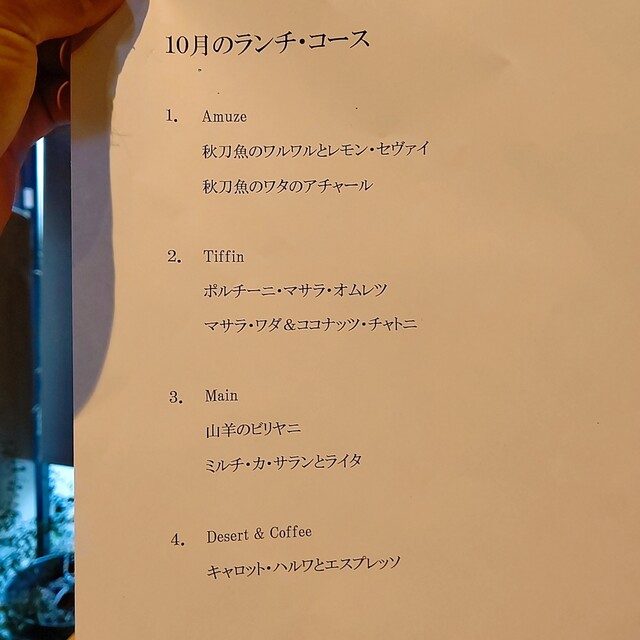 10月のランチ・コース
1. Amuze
秋刀魚のワルワルとレモン・セヴァイ
秋刀魚のワタのアチャール
2. Tiffin
ポルチーニ・マサラ・オムレツ
マサラ・ワダ&ココナッツ・チャトニ
3. Main
山羊のビリヤニ
ミルチ・カ・サランとライタ
4. Desert & Coffee
キャロット・ハルワとエスプレッソ